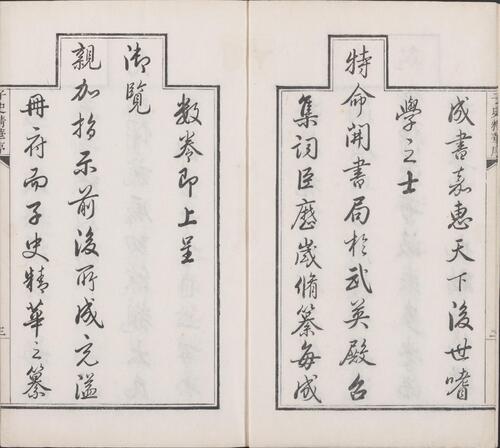 成書嘉惠天下後世嗜
學之士
特命開書局於武英殿召
集詞臣歷歲脩纂每成
數卷即上呈
御覽
親加指示前後所成充溢
冊府而子史精華之纂
子史精華序
三